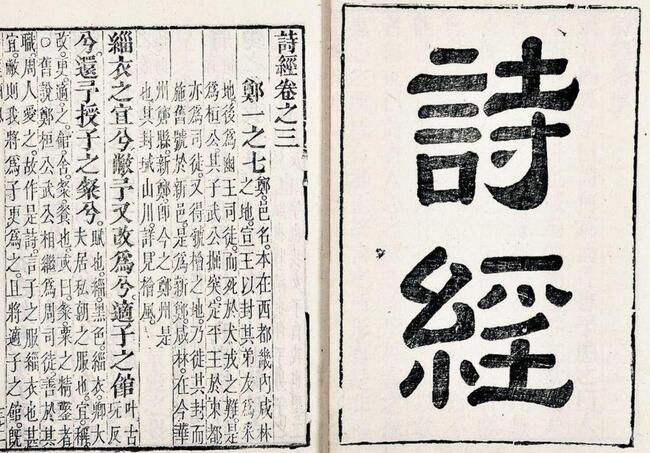 詩經
詩經卷之三
鄭一之七
鄭。邑名。本在西都畿內咸林
之地。宣王以封其弟友爲采
地。後爲幽王司徒。而死於犬戎之難。是
爲桓公。其子武公掘突。定平王於東都。
亦爲司徒。又得虢檜之地。乃徙其封。而
施舊號於新邑。是爲新鄭。咸林。在今華
州鄭縣。新鄭。卽今之鄭州是
也。其封域山川。詳見檜風。
緇衣之宜兮。敝予又改爲兮。適子之館
叶古
玩反
兮。還予授子之粲兮。
賦也。緇。黑色。緇衣。卿大
夫居私朝之服也。宜。稱。
改。更。適。之。館。舍。粲。餐也。或曰。粲。粟之精鑿者。
○舊說。鄭桓公武公。相繼爲周司徒。善於其
職。周人愛之。故作是詩。言子之服緇衣也。甚
宜。敝則我將爲子更爲之。且將適子之館。旣